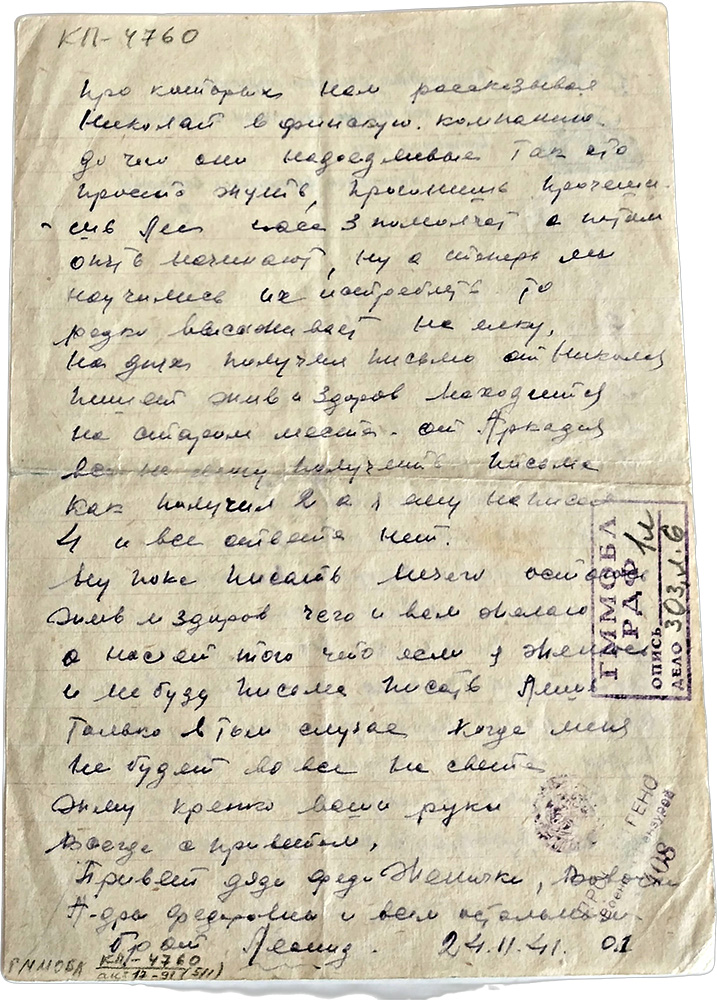 КП-4760
про которых нам рассказывал
Николай в финскую. компанию.
до чего они надоедливые так что
просто жуть,
часа 3 помолчат а потом
опять начинают, ну а теперь мы
научились их истреблять то
редко высаживает на елку,
на днях получил письмо от Николая
пишет жив и здоров находится
на старом месте. от Аркадия
все не могу получить письма
как получил 2 а я ему написал
4 и все ответа нет.
Ну пока писать нечего остаюсь
жив и здоров чего и вам желаю
а насчет того что если я женюсь
и не буду письма писать
только в том случае когда меня
не будет во все на свете
жму крепко ваши руки
Всегда с приветом,
Привет дяде феде Женички, Вовочки
А-дры федоровны и всем остальным.
брат Леонид. 24.11.41.
ГММОБЛ
РДФ
ОПИСЬ 1л
ДЕЛО 303,л.6
408
ГММОБЛ КП-4760